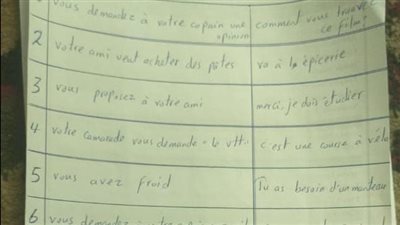 vous demandez à votre copain une opinion
comment vous trouvez ce film?
2 votre ami veut acheter des pâtes
va à la épicerie
3 vous proposez à votre ami
merci, je dois étudier
4 votre camarade vous demande "le vtt"
c'est une course à vélo
5 vous avez froid
Tu as besoin d'un manteau
6 vous